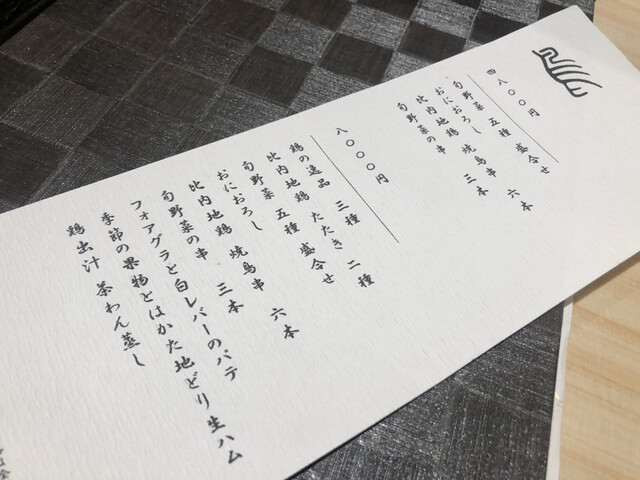 四八〇〇円
旬野菜 五種 盛合せ
おにおろし
比内地鶏 焼鳥串 六本
旬野菜の串 三本
八〇〇〇円
鶏の逸品 三種 たたき 二種
比内地鶏 五種 盛合せ
旬野菜
おにおろし
比内地鶏 焼鳥串 六本
旬野菜の串 三本
フォアグラと白レバーのパテ
季節の果物とはかた地どり生ハム
鶏出汁 茶わん蒸し